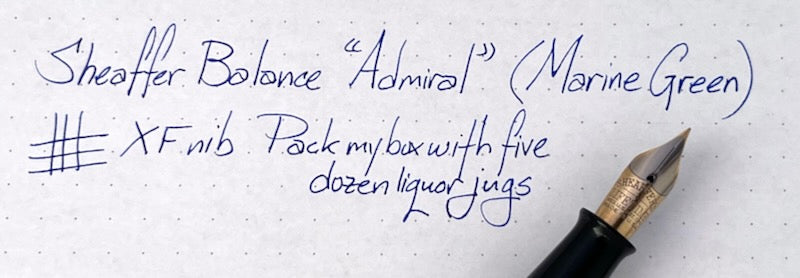 Sheaffer Balance "Admiral" (Marine Green)
XF nib Pack my box with five
dozen liquor jugs
SHEAFFER'S